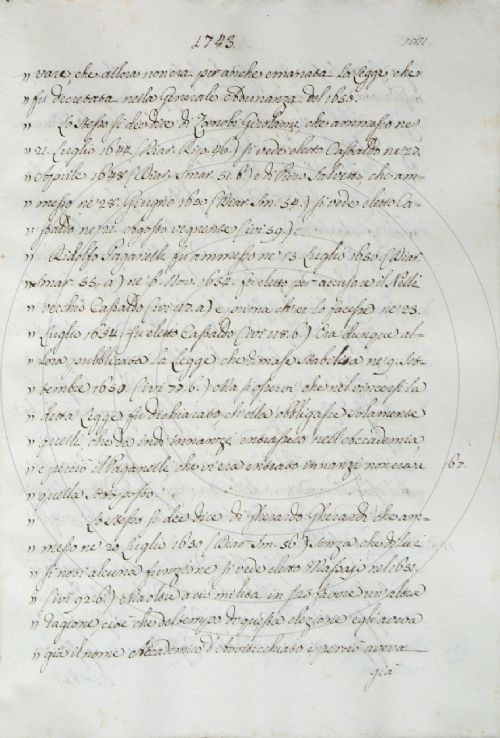 1743.
1001.
„ vare, che allora non era per anche emanata la Legge, che
„ fu decretata nella Generale Adunanza del 1650.
„ Lo stesso si dee dire di Zanobi Girolami che ammesso ne
„ 21. Luglio 1644. (Diar. 46.) si vede eletto Castaldo ne 27.
„ Aprile 1648 (Diar. Smar. 51. b) e di Piero Salvetti che am=
„ messo ne 28. Giugno 1650 (Diar. Sm. 54.) si vede eletto Ca=
„ staldo ne Agosto vegnente (ivi 59.).
„ Ridolfo Paganelli fu ammesso ne 13. Luglio 1650. (Diar.
„ Smar. 55. a) ne 6. Nov. 1652. fu eletto per accusare il
„ vecchio Castaldo (ivi 117. a) e prima che ei lo facesse ne 23.
„ Luglio 1654. fu eletto Castaldo (ivi 118. b.) Era dunque al=
„ lora pubblicata la Legge che rimase stabilita ne 9. Set=
„ tembre 1650 (ivi 77. b.) Ma si osservi che nel la
„ detta Legge fu dichiarato ch'ella obbligasse solamente
„ quelli che da indi innanzi entrassero nell'Accademia,
„ e perciò il Paganelli, che vi era entrato innanzi non era a 167.
„ quella sottoposto.
„ Lo stesso si dee dire di Gherardo Gherardi che am=
„ messo ne 28 Luglio 1650 (Diar. Sm. 56.) senza che di lui
„ si noti alcuna funzione si vede eletto Massaio nel 1651.
„ (ivi 92. b.) Ma oltre a ciò milita in suo favore un'altra
„ ragione cioè che nel tempo di questa elezione egli aveva
„ già il nome Accademico d'Avviticchiato, e perciò aveva
già